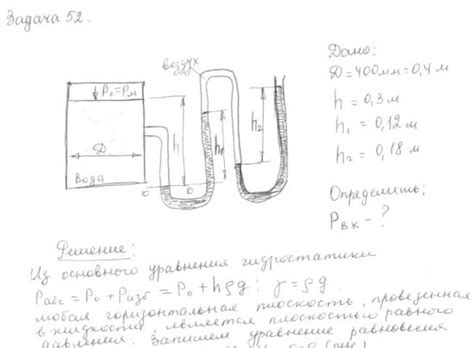 Задача 52.
воздух
Pс=Pм
h
h₁
h₂
D
вода
0 0
Дано:
D = 400мм = 0,4 м
h = 0,3 м
h₁ = 0,12 м
h₂ = 0,18 м
Определить:
Pвк - ?
Решение:
Из основного уравнения гидростатики
Pабс = P₀ + Pизб = P₀ + hρg; γ = ρg
любая горизонтальная плоскость, проведенная
в жидкости, является плоскостью равного
давления. Запишем уравнение равновесия
0-0 (рис)